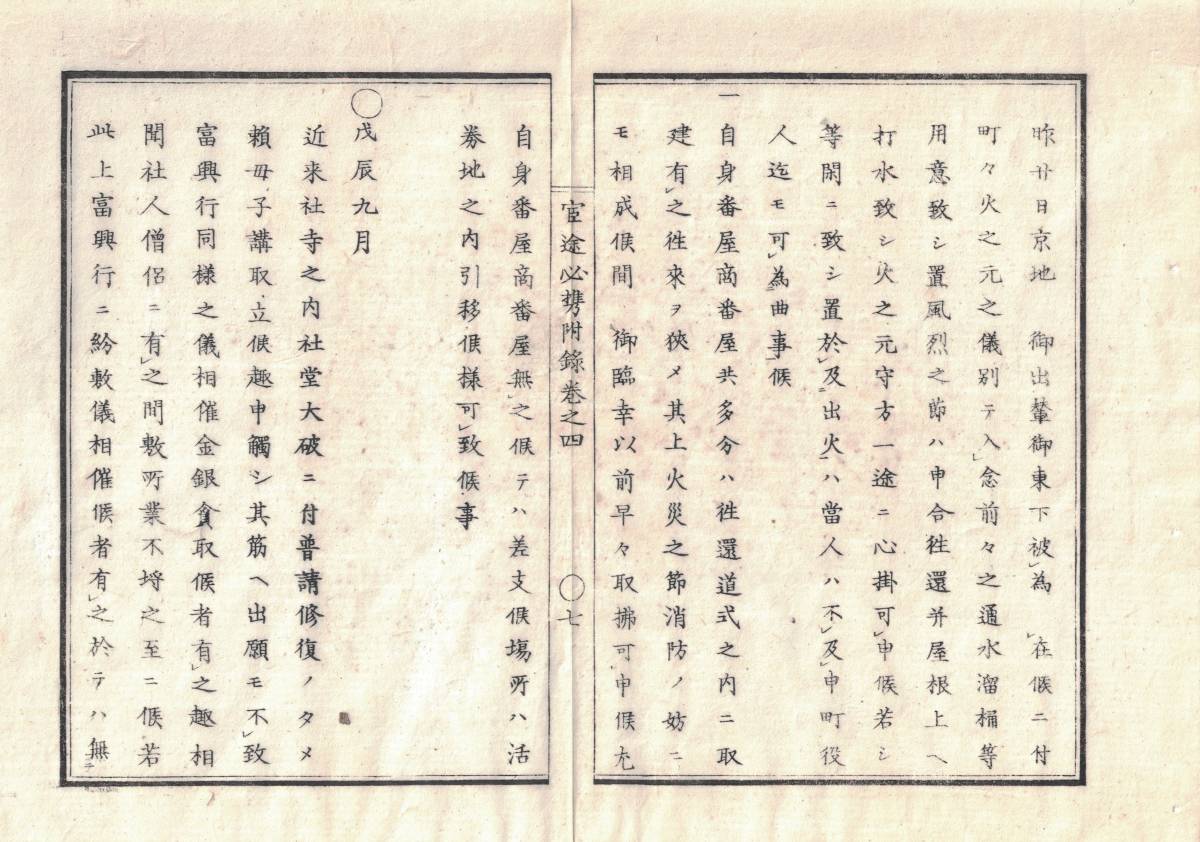 昨廿日京地　御出輦御東下被為　在候ニ付
町々火之元之儀別テ入念前々之通水溜桶等
用意致シ置風烈之節ハ申合徃還并屋根上ヘ
打水致シ火之元守方一途ニ心掛可申候若シ
等閑ニ致シ置於及出火ハ當人ハ不及申町役
人迄モ可為曲事候
一
自身番屋商番屋共多分ハ徃還道式之内ニ取
建有之徃來ヲ狹メ其上火災之節消防ノ妨ニ
モ相成候間　御臨幸以前早々取拂可申候尤
宦途必携附錄卷之四　〇七
自身番屋商番屋無之候テハ差支候塲所ハ活
券地之内引移候様可致候事
〇
戊辰九月
近来社寺之内社堂大破ニ付普請修復ノタメ
賴母子講取立候趣申觸シ其筋ヘ出願モ不致
富興行同様之儀相催金銀貪取候者有之趣相
聞社人僧侶ニ有之間敷所業不埒之至ニ候若
此上富興行ニ紛敷儀相催候者有之於テハ無